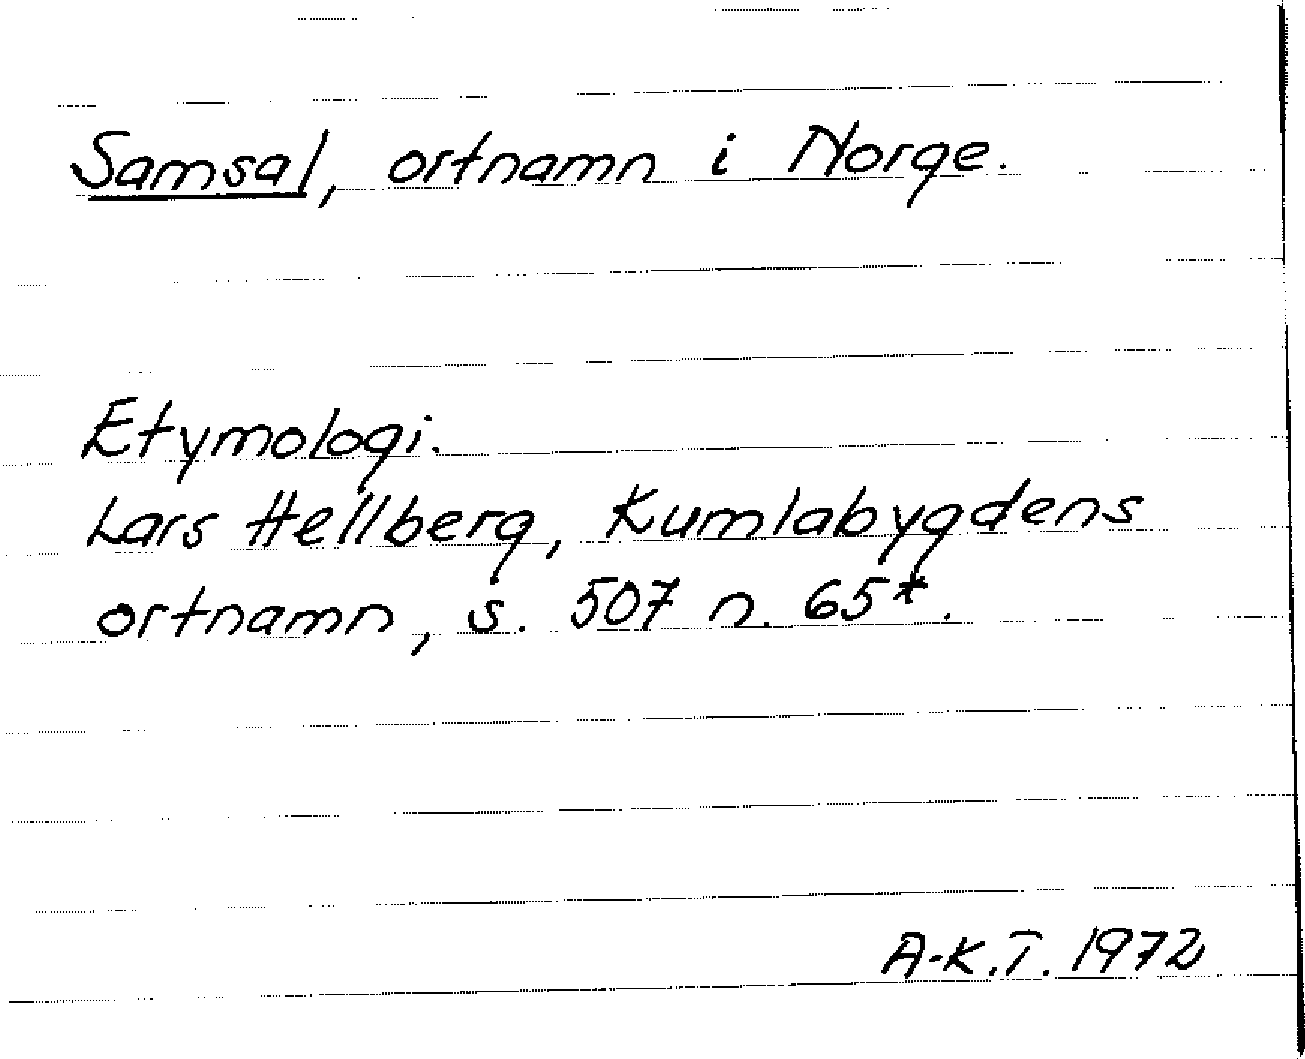 Samsal, ortnamn i Norge.
Etymologi.
Lars Hellberg, Kumlabygdens
ortnamn, s. 507 n. 65*.
A-K.T. 1972